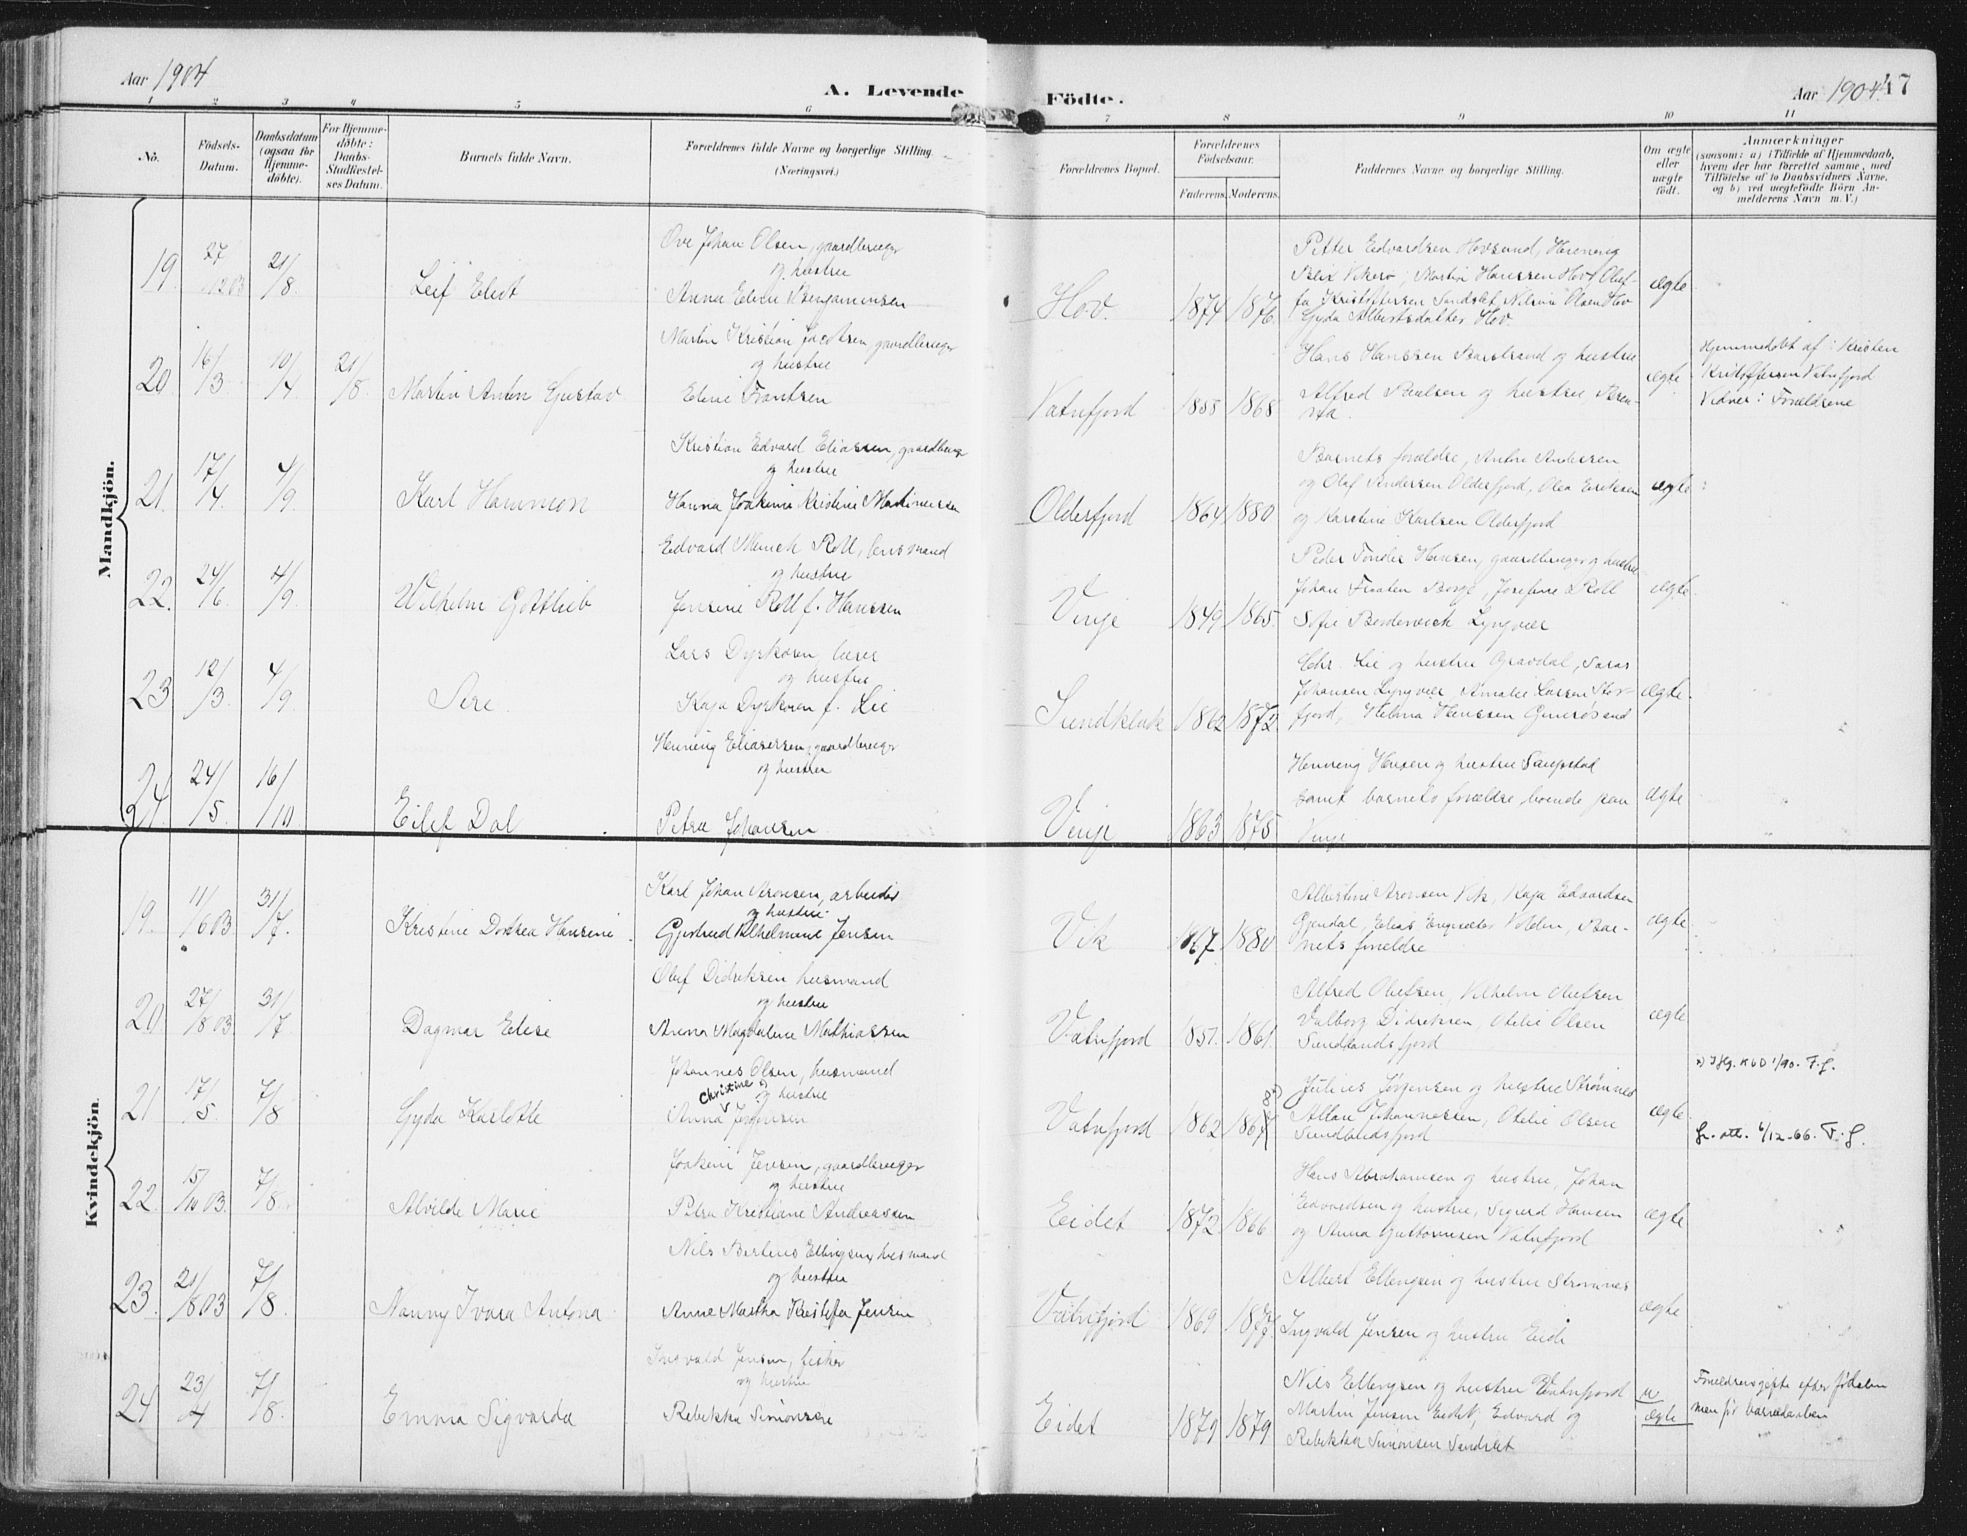 Aar 1904
A. Levende
Födte.
Aar 1904.
47
1 2 3 4 5 6 7 8 9 10 11
No.
Födsels-
Datum.
Daabsdatum
(ogsaa for
Hjemme-
döbte).
For Hjemme-
döbte:
Daabs-
Stadfæstel-
ses Datum.
Barnets fulde Navn.
Forældrenes fulde Navne og borgerlige Stilling
(Næringsvei.)
Forældrenes Bopæl.
Forældrenes
Födselsaar.
Faderens. Moderens.
Faddernes Navne og borgerlige Stilling.
Om ægte
eller
uægte
födt.
Anmærkninger
(saasom: a) i Tilfælde af Hjemmedaab,
hvem der har forrettet samme, med
Tilföielse af to Daabsvidners Navne,
og b) ved uægtefödte Börn An-
melderens Navn m. V.)
Mandkjön.
19. 27/12 03 21/8 Leif Elist
Ove Johan Olsen, gaardbruger
og hustru
Anna Eline Benjaminsen
Hov. 1874 1876.
Petter Edvardsen Hovsund, Henning
Martin Hanssen Hov, Olaf-
fa Kristoffersen Sandslet, Nilsine Olsen Hov
Gyda Albertsdatter Hov.
ægte
20. 16/3 10/4 21/8. Martin Anton Gustav
Martin Kristian Jacobsen, gaardbruger
og hustru
Eline Frantsen
Vatnfjord 1858 1868
Hans Hanssen Barstrand og hustru
Alfred Paulsen og hustru, Beren-
tha.
ægte
Hjemmedøbt af: Kristen
Kristoffersen Vatnfjord
Vidner: Forældrene
21. 17/4 4/9 Karl Hammon
Kristian Edvard Eliassen, gaardbruger
og hustru
Hanna Joakime Kristine Martinussen
Olderfjord 1864 1880
Barnets forældre, Andre Andersen
og Olaf Andersen Olderfjord, Olea Eriksen
og Karstine Karlsen Olderfjord
ægte
22. 24/6. 4/9 Wilhelm Gottlieb
Edvard Munch Roll, lensmand
og hustru
Jensine Roll f. Hanssen
Vinje 1849 1865.
Peder Tønder Hansen, gaardbruger og hustru
Johan Borge, Josefine Roll
Sofie Lyngvær
ægte.
23 12/3. 4/9 Are
Lars Dyrkoren, lærer
og hustru
Kaja Dyrkoren f. Lie
Sundklak 1862 1872.
Chr. Lie og hustru Gravdal,
Johansen Lyngvær Amalie Larsen Stor-
fjord, Helma Hanssen Gimsøsand
ægte.
24. 24/5. 16/10 Eilef Dal
Henning Eliasersen, gaardbruger
og hustru
Petra Johansen
Vinje 1863 1875
Henning Hansen og hustru Saupstad
samt barnets forældre boende paa
Vinje
ægte
Kvindekjön.
19. 11/6 03 31/7. Kristine Dorthea Hansine
Karl Johan Aronsen, arbeider
og hustru
Gjertrud Vilhelmine Jensen
Vik 1867. 1880
Albertine Aronsen Vik, Kaja Edvardsen
Gjendal, Elias Volden, Bar-
nets forældre
ægte
20 27/8 03 31/7. Dagmar Elise
Oluf Didriksen husmand
og hustru
Anna Magdalene Mathiassen
Vatnfjord 1857. 1861.
Alfred Olufsen, Vilhelm Olufsen
Valborg Didriksen, Otelie Olsen
Sundklandsfjord
ægte
21 17/5. 7/8 Gyda Karlotte
Johannes Olsen, husmand
og hustru
Christine
Anna Jørgensen
Vatnfjord 1862 1867
Julius Jørgensen og hustru Strømnes
Allan Johannessen, Otelie Olsen
Sundklandsfjord
ægte.
x) Ifg. K 60 1/90. F.f.
fr. att. 6/12-66. F.f.
22. 15/10 03. 7/8. Alvilde Marie
Joakim Jensen, gaardbruger
og hustru
Petra Kristiane Andreassen
Eidet 1872. 1866
Hans Abrahamsen og hustru, Johan
Edvardsen og hustru, Sigurd Hansen
og Anna Guttormsen Vatnfjord
ægte
23. 21/8 03 7/8. Nanny Ivara Antona
Nils Bertinus Ellingsen, husmand
og hustru
Anne Martha Kristofa Jensen
Vatnfjord 1869 1877.
Albert Ellingsen og hustru Strømnes
Ingvald Jensen og hustru Eide
ægte
24 23/4 7/8. Emma Sigvarda
Ingvald Jensen, fisker
og hustru
Rebekka Simonsen
Eidet 1879 1879
Nils Ellingsen og hustru Vatnfjord
Martin Jensen Eidet, Edvard og
Rebekka Simonsen Sandslet
u
ægte
Forældrene gifte efter fødselen
men før barnedaaben